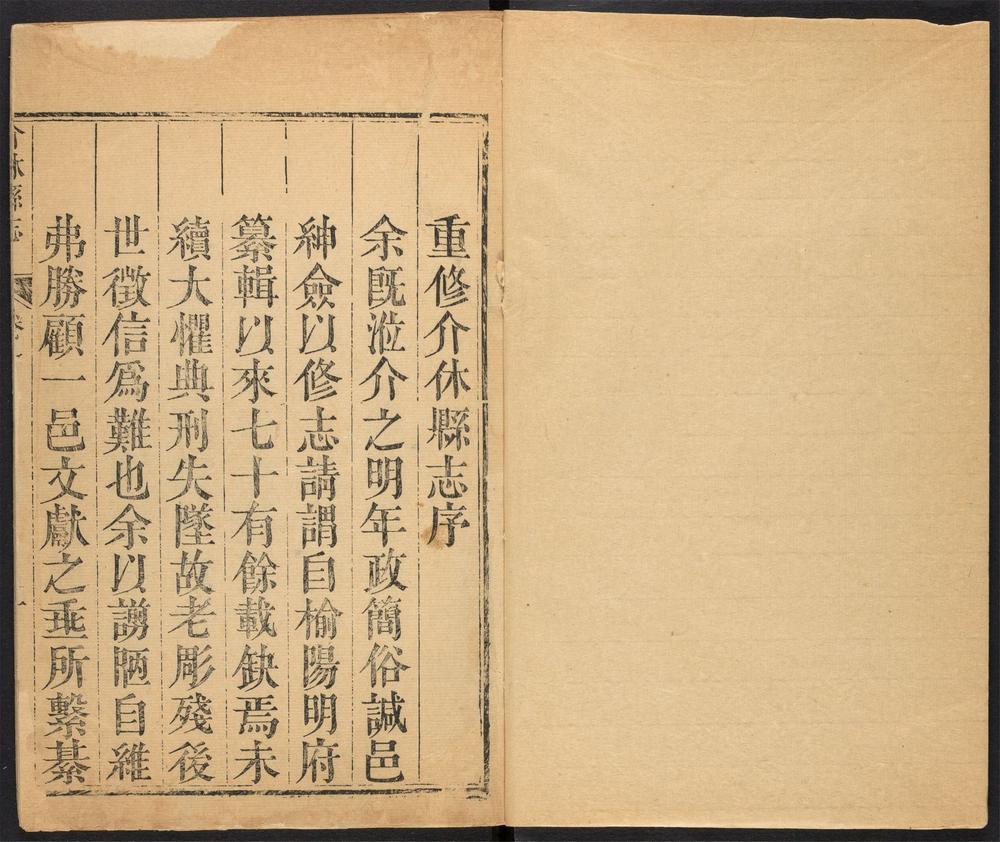 重修介休縣志序
余旣涖介之明年政簡俗諴邑
紳僉以修志請謂自榆陽明府
纂輯以來七十有餘載缺焉未
續大懼典刑失墜故老彫殘後
世徵信爲難也余以謭陋自維
弗勝顧一邑文獻之埀所繫綦
介休縣志